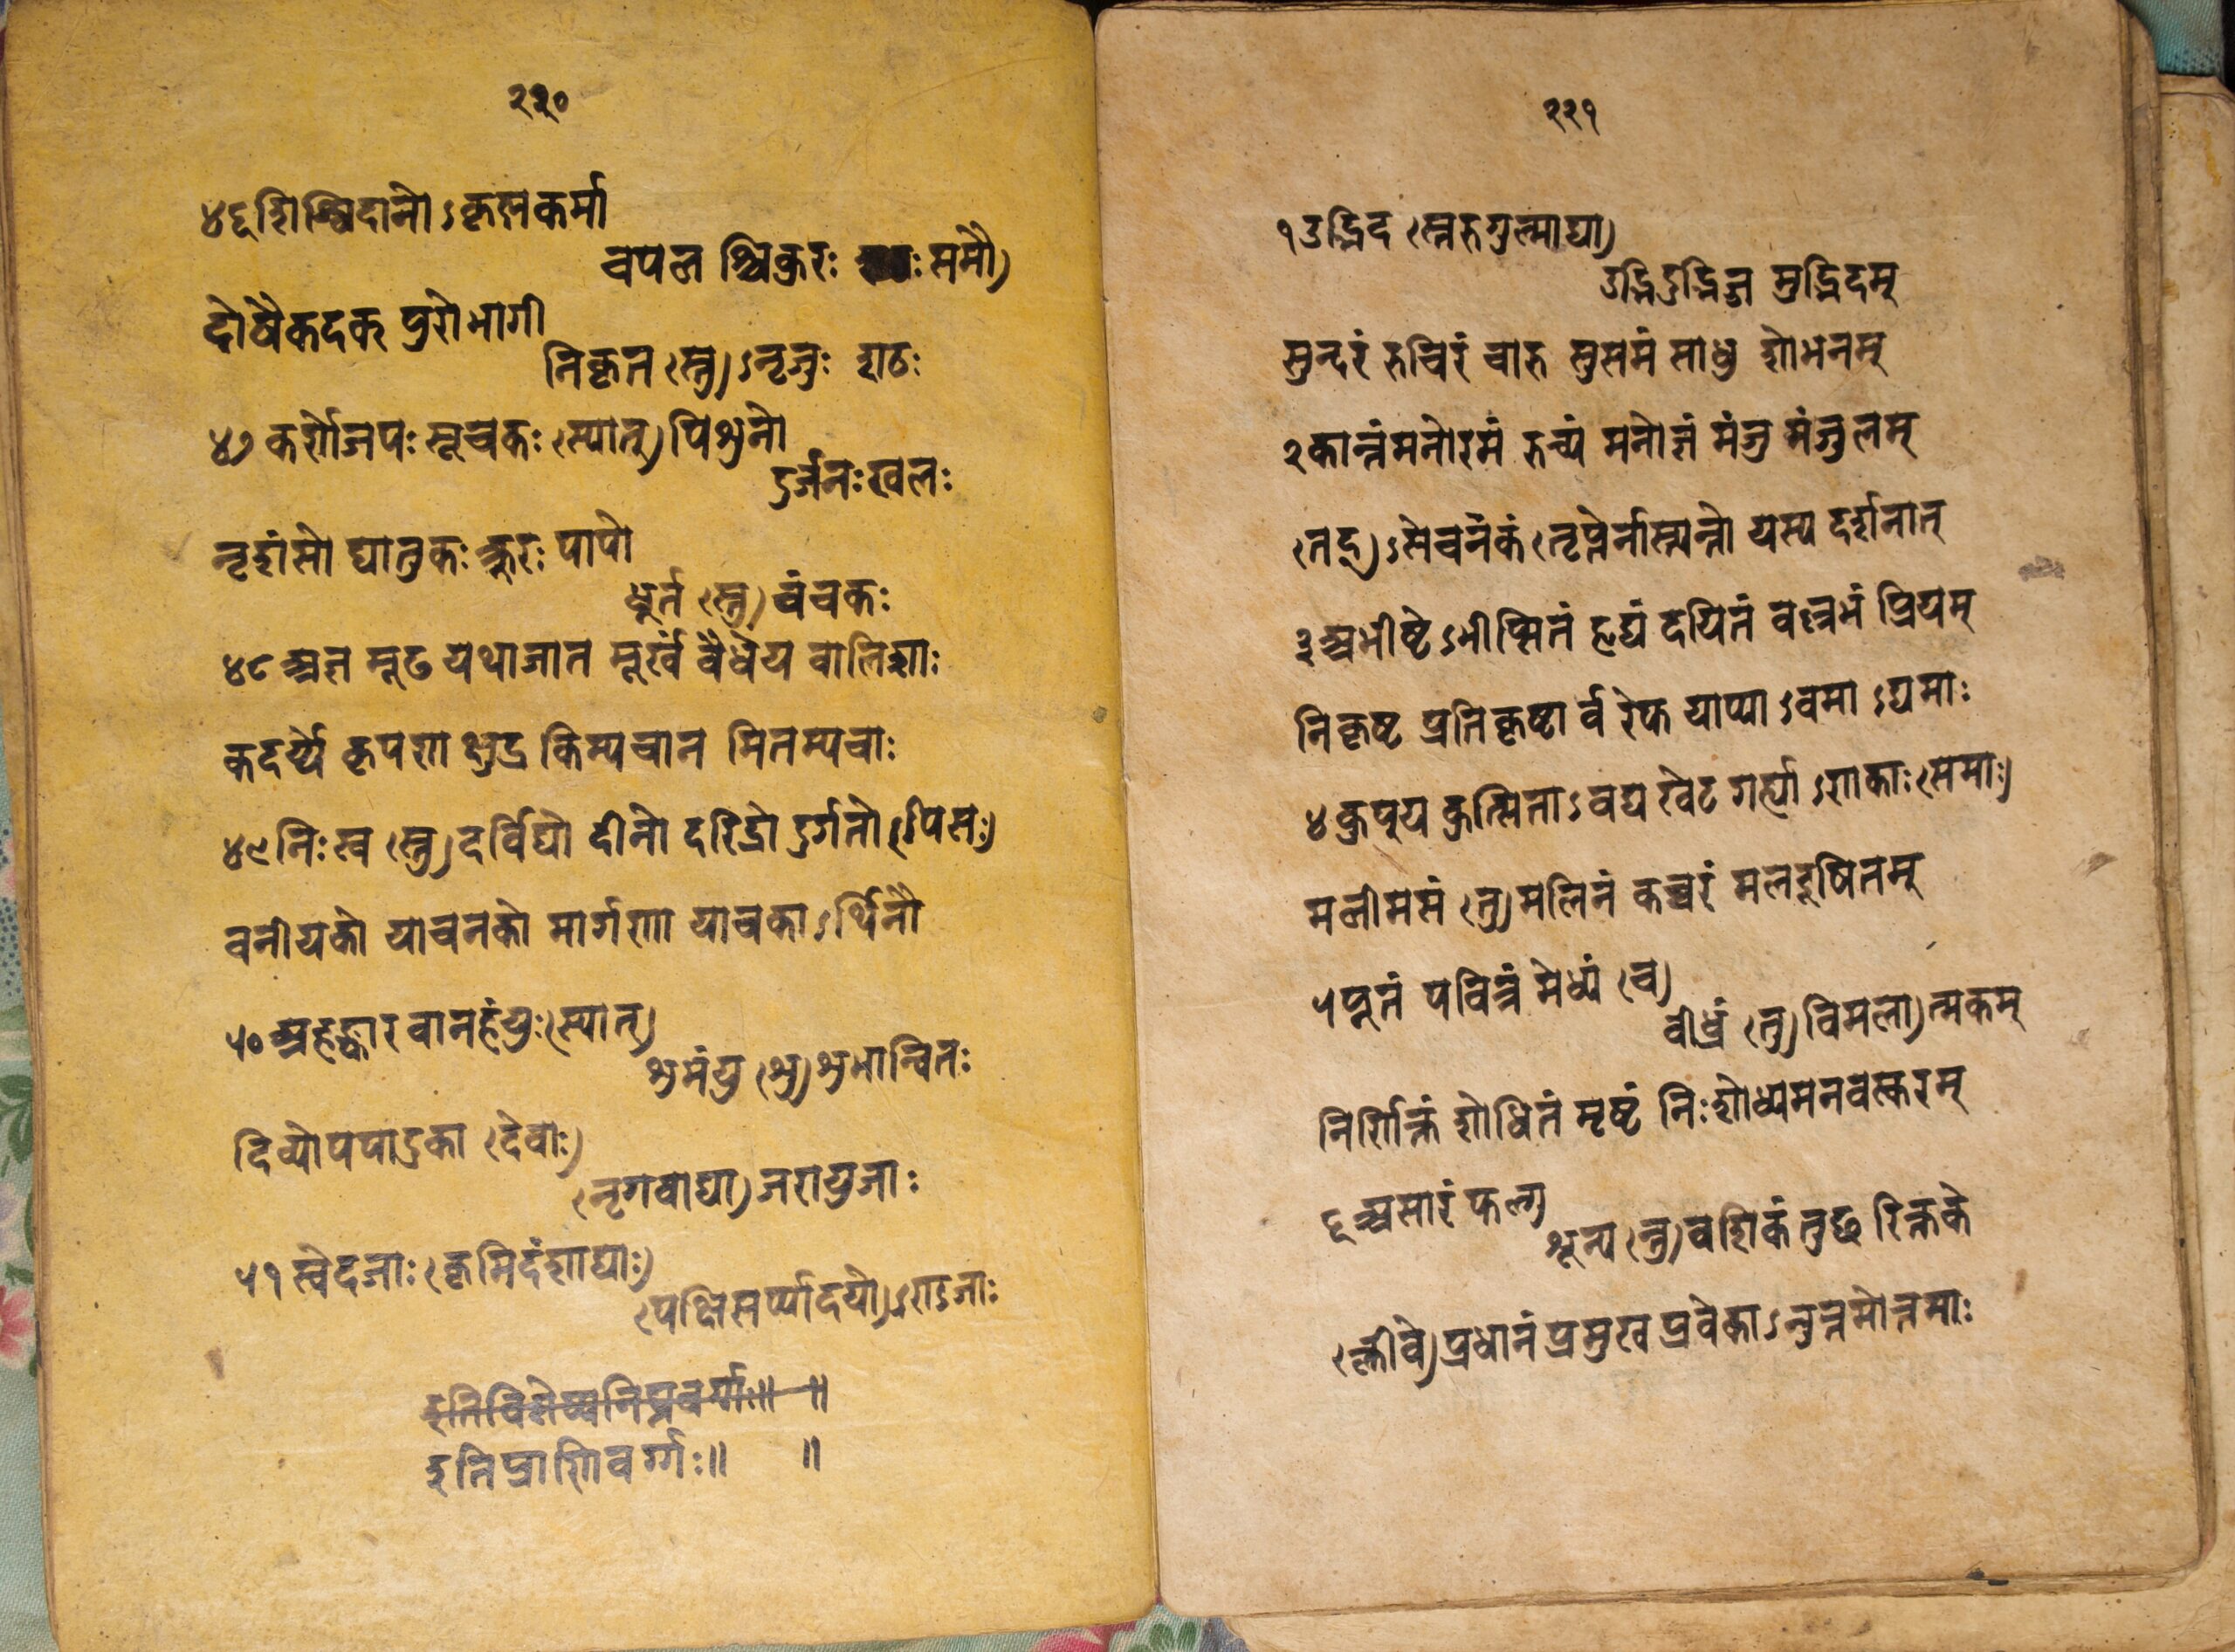 २२०
४६ शिश्विदानोऽकृष्णकर्मा
चपल श्चिकुरः समौ)
दोषैकदृक् पुरोभागी
निकृत (स्तु)ऽनृजुः शठः
४७ कर्णेजपः सूचकः (स्यात्) पिशुनो
दुर्जनः खलः
नृशंसो घातुकः क्रूरः पापो
धूर्त (स्तु) वंचकः
४८ अज्ञ मूढ यथाजात मूर्ख वैधेय वालिशाः
कदर्य्ये कृपण क्षुद्र किम्पचान मितम्पचाः
४९ निःस्व (स्तु) दुर्विधो दीनो दरिद्रो दुर्गतो (ऽपि सः)
वनीयको याचनको मार्गणो याचकाऽर्थिनौ
५० अहङ्कारवानहंयुः (स्यात्)
शुभंयु (श्तु) शुभान्वितः
दिव्योपपादुका (देवाः)
(नृगवाद्या) जरायुजाः
५१ स्वेदजाः (कृमिदंशाद्याः)
(पक्षिसर्प्पादयो)ऽण्डजाः
इति विशेष्यनिघ्नवर्गः॥ ॥
इति प्राणिवर्ग्गः॥ ॥
२२१
१ उद्भिद (स्तरुगुल्माद्या)
उद्भिदुद्भिज्ज मुद्भिदम्
सुन्दरं रुचिरं चारु सुसमं साधु शोभनम्
२ कान्तं मनोरमं रुच्यं मनोज्ञं मंजु मंजुलम्
(तद)ऽसेचनकं (तृप्तेर्नास्त्यन्तो यस्य दर्शनात्
३ अभीष्टेऽभीप्सितं हृद्यं दयितं वल्लभं प्रियम्
निकृष्ट प्रतिकृष्टार्व रेफ याप्याऽवमाऽधमाः
४ कुपूय कुत्सिताऽवद्य खेट गर्ह्याऽणकाः (समाः)
मलीमसं (तु) मलिनं कच्चरं मलदूषितम्
५ पूतं पवित्रं मेध्यं (च)
वीध्रं (तु) विमला)त्मकम्
निर्णिक्तं शोधितं मृष्टं निःशोध्यमनवस्करम्
६ असारं फल्गु
शून्य (न्तु) वशिकं तुछ रिक्तके
(क्लीवे) प्रधानं प्रमुख प्रवेकाऽनुत्तमोत्तमाः